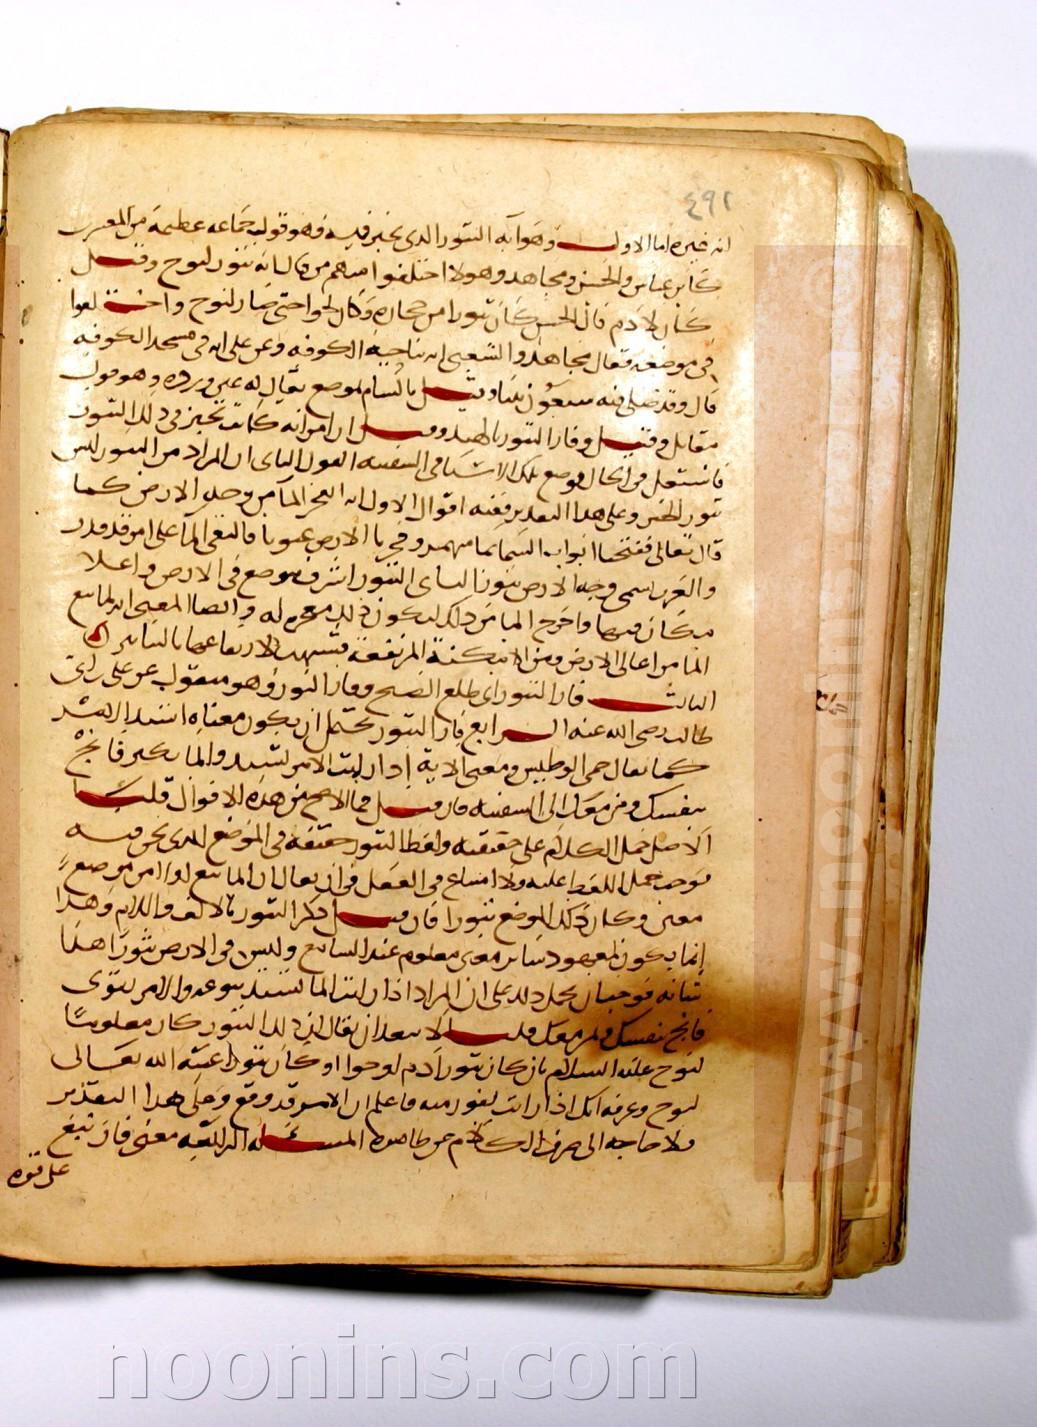 ٤٩١
انه غيره اما الاول وهو انه التنور الذى يخبز فيه فهو قول جماعه عظيمة من المفسرين
كابن عباس والحسن ومجاهد وهولا اختلفوا منهم من قال انه تنور لنوح وقيل
كان لادم قال الحسن كان تنورا من حجاره وكان لحوا حتى صار لنوح واختلفوا
فى موضعه فقال مجاهد والشعبى انه بناحية الكوفه وعن على انه فى مسجد الكوفه
قال وقد صلى فيه سبعون نبيا وقيل بالشام بموضع يقال له عين ورده وهو قول
مقاتل وقيل وفار التنور بالهند وقيل ان امراته كانت تخبز فى ذلك التنور
فاشتغل فى الحال بوضع تلك الاشيا فى السفينه القول الثانى ان المراد من التنور ليس
تنور الخبز وعلى هذا التقدير ففيه اقوال الاول انه انفجر الما من وجه الارض كما
قال تعالى ففتحنا ابواب السما بما منهمر وفجرنا الارض عيونا فالتقى الما على امر قد قدر
والعرب تسمى وجه الارض تنورا الثانى التنور اشرف موضع فى الارض واعلا
مكان فيها واخرج الما من ذلك ليكون ذلك معجزه له وايضا المعنى انه لما نبع
الما من اعالى الارض ومن الامكنة المرتفعة فشبهت لارتفاعها بالتنانير
الثالث فار التنور اى طلع الصبح وفار النور وهو منقول عن على رابن
طالب رضى الله عنه الرابع فار التنور يحتمل ان يكون معناه اشتد الامر
كما يقال حمى الوطيس ومعنى الاية اذا رايت الامر يشتد والما يكثر فانج
بنفسك ومن معك الى السفينه فان قيل فما الاصح من هذه الاقوال قلنا
الاصل حمل الكلام على حقيقته ولفظ التنور حقيقه فى الموضع الذى يخبز فيه
فوجب حمل اللفظ عليه ولا امتناع فى العقل فى ان يقال ان الما نبع اولا من موضع
معين وكان ذلك الموضع تنورا فان قيل ذكر التنور بالالف واللام وهذا
انما يكون لمعهود سابق معين معلوم عند السامع وليس فى الارض تنورا هذا
شانه فوجب ان يحمل ذلك على ان المراد اذا رايت الما يشتد نبوعه والامر يقوى
فانج بنفسك ومن معك قلنا لا يبعد ان يقال ان ذلك التنور كان معلوما
لنوح عليه السلام بان كان تنور ادم او حوا او كان تنورا عينه الله تعالى
لنوح وعرفه انك اذا رايت يفور منه فاعلم ان الامر قد وقع وعلى هذا التقدير
فلا حاجه الى صرف الكلام عن ظاهره المسئلة الرابعه معنى فار نبع
على قوه
www.noonins.com
noonins.com